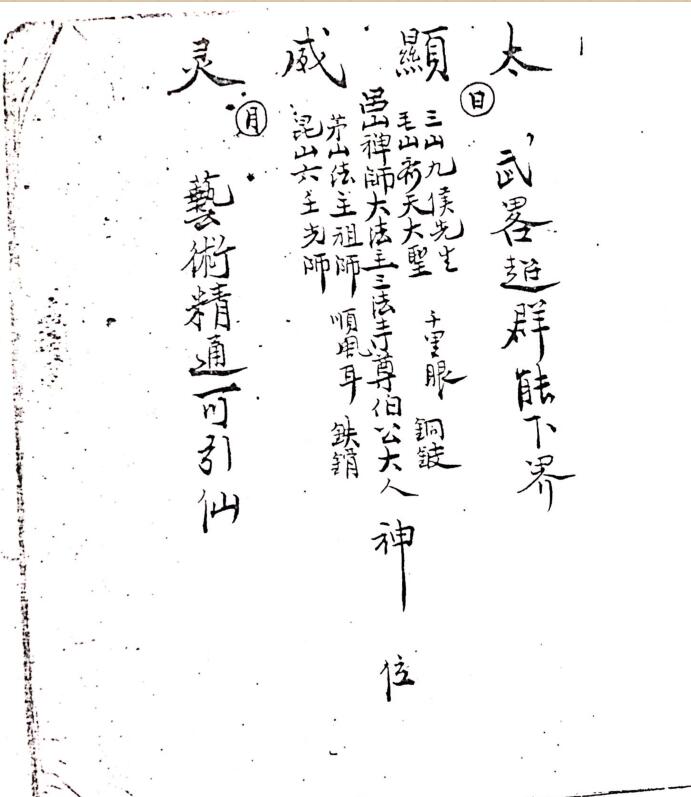 太顯威灵
日
武畧超群能下界
三山九侯先生 千里眼 銅
毛山齐天大聖
山禅師大法主三法寺尊伯公大人神位
茅山法主祖師 順風耳 鉄銷
昆山六主先師
月
藝術精通可引仙